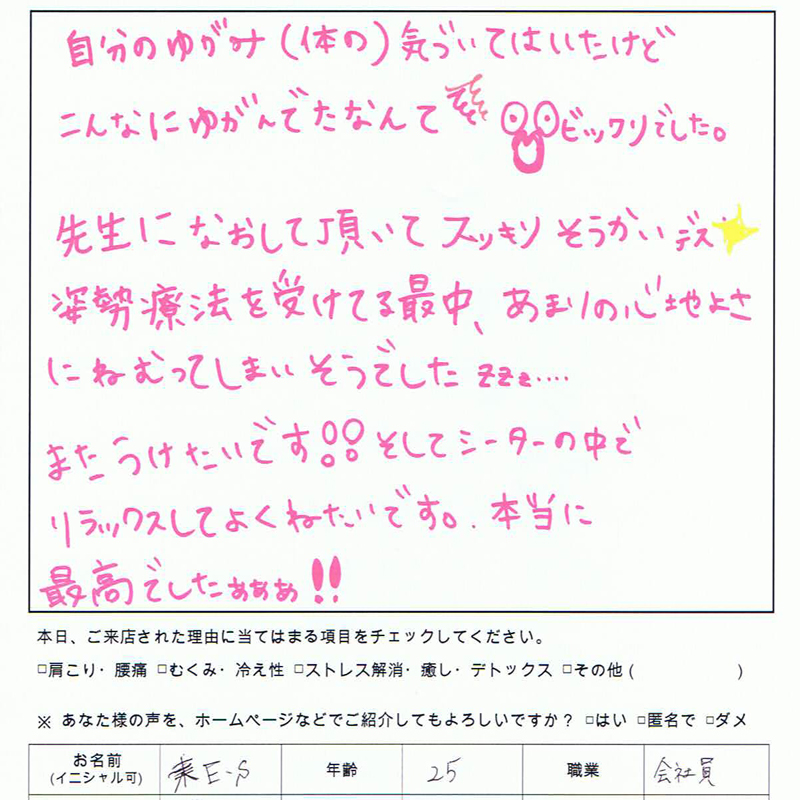 自分のゆがみ(体の)気づいてはいたけど
こんなにゆがんでたなんて ビックリでした。
先生になおして頂いてスッキリそうかいデス
姿勢療法を受けてる最中、あまりの心地よさ
にねむってしまいそうでした zzz....
またうけたいです!! そしてシーターの中で
リラックスしてよくねたいです。. 本当に
最高でしたぁぁぁ!!
本日、ご来店された理由に当てはまる項目をチェックしてください。
□肩こり・腰痛 □むくみ・冷え性 □ストレス解消・癒し・デトックス □その他( )
※ あなた様の声を、ホームページなどでご紹介してもよろしいですか? □はい □匿名で □ダメ
お名前 E-S 年齢 25 職業 会社員
(イニシャル可)